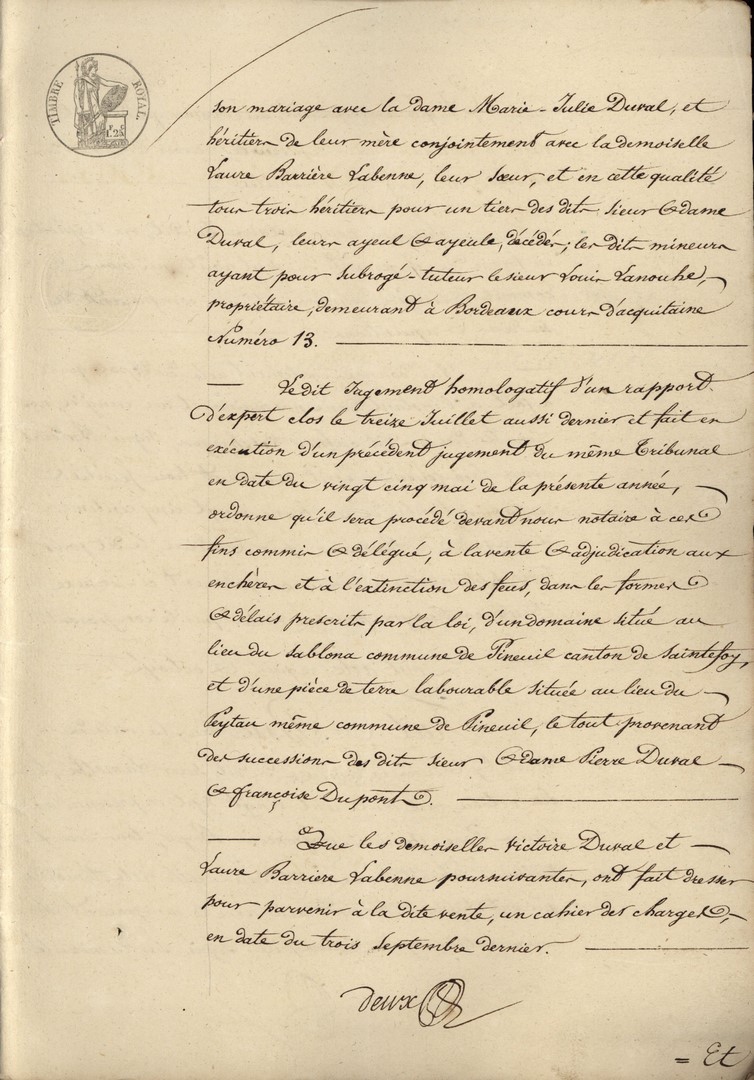 TIMBRE ROYAL
1f 25c
son mariage avec la dame Marie-Julie Duval, et
héritiers de leur mère conjointement avec la demoiselle
Laure Barrière Labenne, leur sœur, et en cette qualité
tous trois héritiers pour un tiers des dits sieur & dame
Duval, leurs ayeul & ayeule, décédés; les dits mineurs
ayant pour subrogé-tuteur le sieur Louis Lanouhe,
propriétaire, demeurant à Bordeaux cours d'acquitaine
Numéro 13.
Le dit Jugement homologatif d'un rapport
d'expert clos le treize Juillet aussi dernier et fait en
exécution d'un précédent jugement du même Tribunal
en date du vingt cinq mai de la présente année,
ordonne qu'il sera procédé devant nous notaire à ces
fins commis & délégué, à la vente & adjudication aux
enchères et à l'extinction des feus, dans les formes
& délais prescrits par la loi, d'un domaine situé au
lieu du Sablona commune de Pineuil canton de Saintefoy,
et d'une pièce de terre labourable située au lieu du
Peytau même commune de Pineuil, le tout provenant
des successions des dits sieur & dame Pierre Duval
& françoise Dupont.
Que les demoiselles victoire Duval et
Laure Barrière Labenne poursuivantes, ont fait dresser
pour parvenir à la dite vente, un cahier des charges,
en date du trois Septembre dernier.
deux
= Et